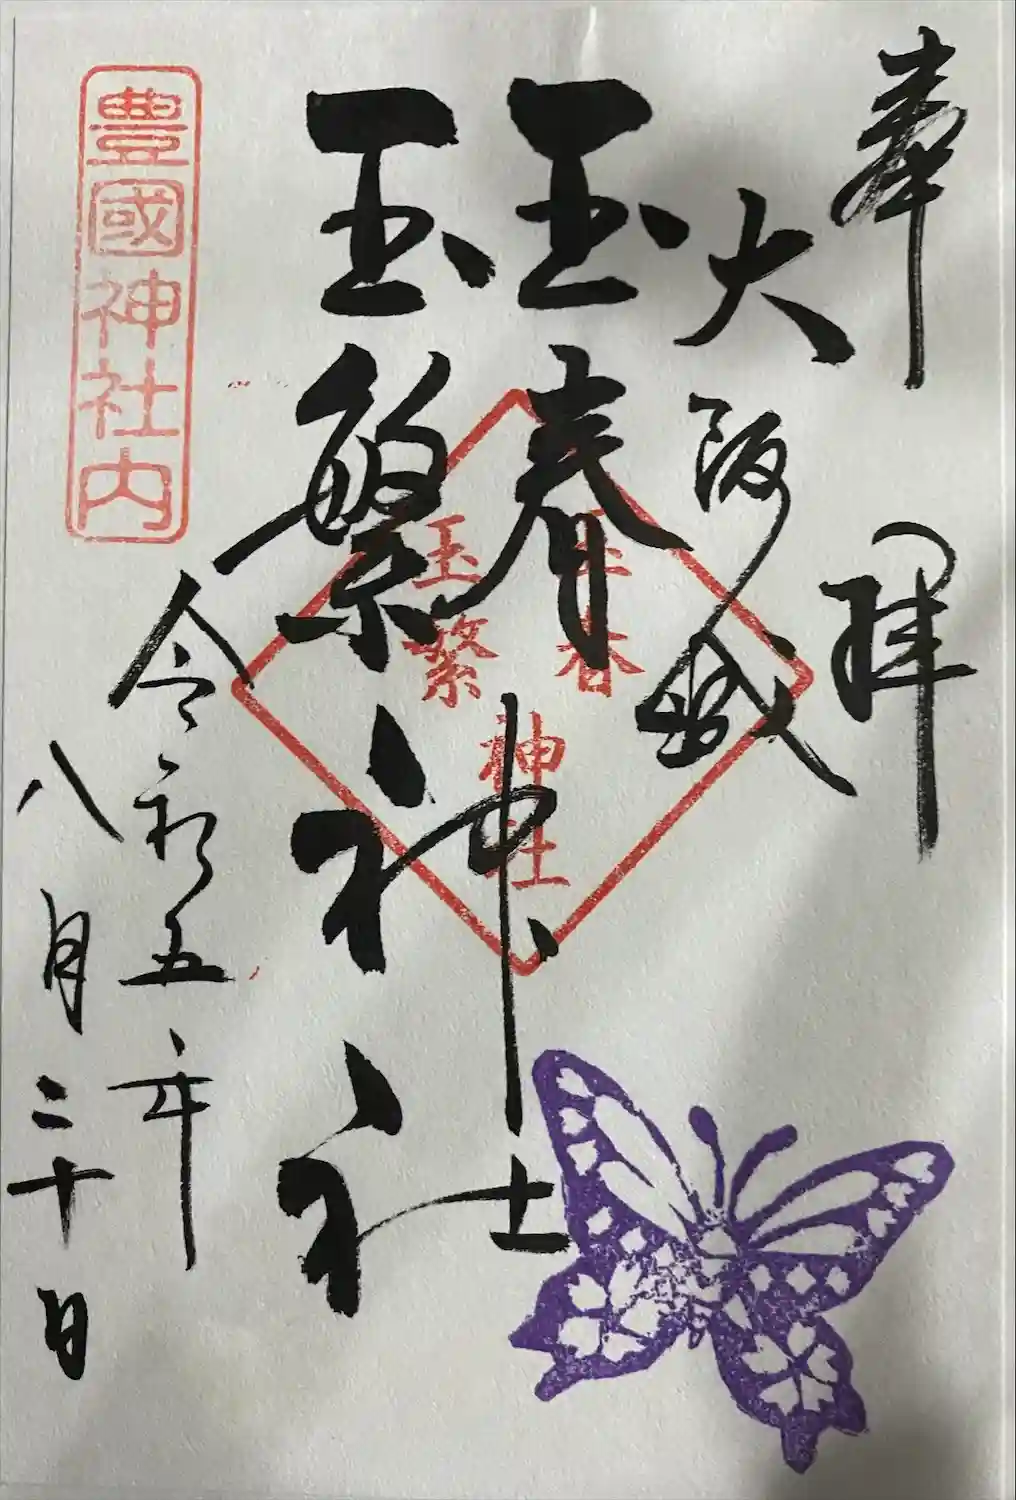 奉拝
大阪城
玉春
玉繁
神社
玉春
玉繁
神社
令和五年
八月二十日
豊國神社内